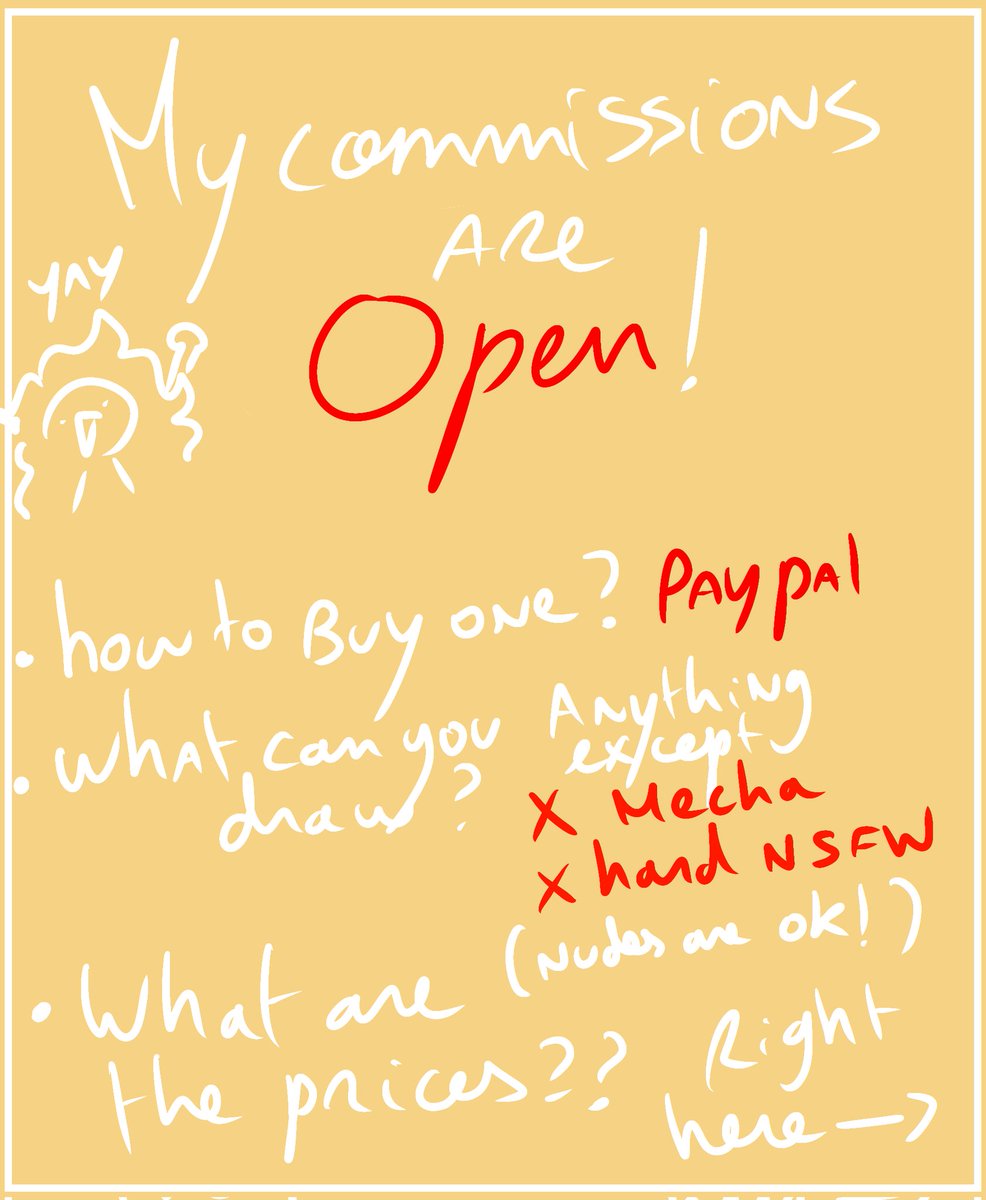 My commissions
ARE
Open!
YAY
• how to Buy one? PAypAl
• WhAt can you draw? Anything except
X Mecha
X hard NSFW
(Nudes are ok!)
• What are the prices?? Right here →